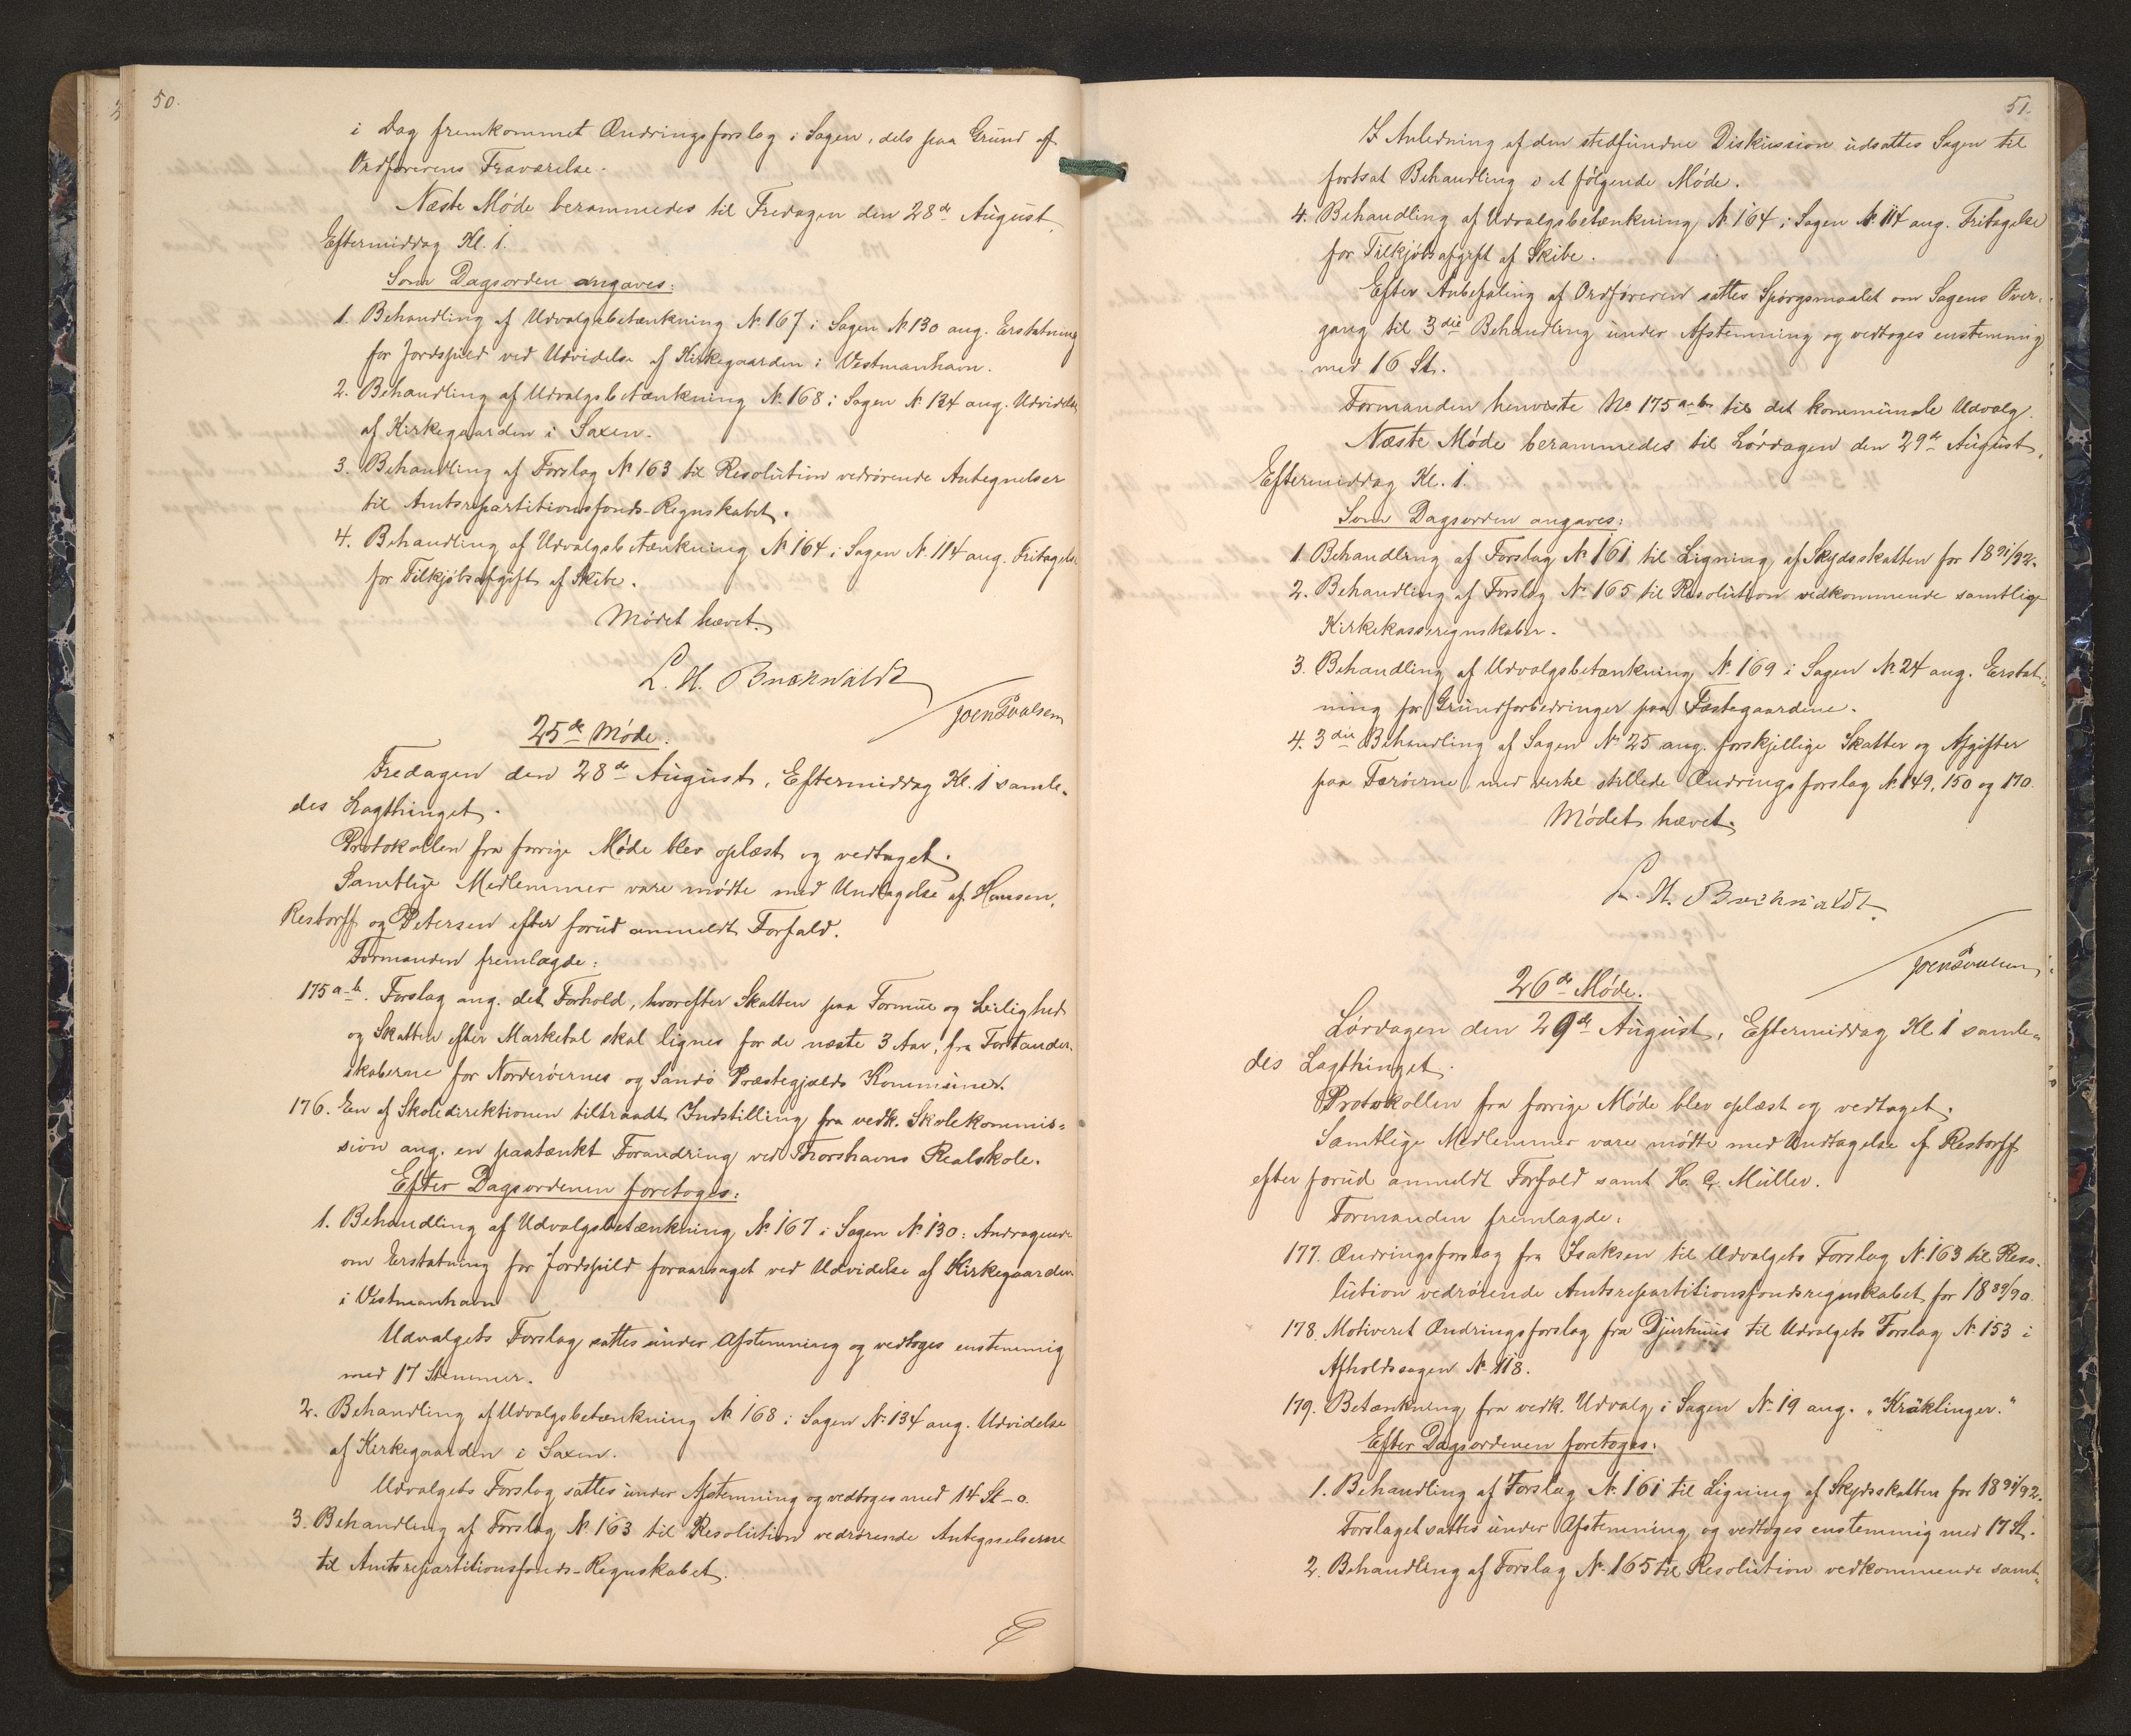 50.
i Dag fremkommet Ændringsforslag i Sagen, dels paa Grund af
Ordførerens Fraværelse.
Næste Møde berammedes til Fredagen den 28de August,
Eftermiddag Kl. 1.
Som Dagsorden angaves:
1. Behandling af Udvalgsbetænkning № 167 i Sagen № 130 ang. Erstatning
for Jordspild ved Udvidelse af Kirkegaarden i Vestmanhavn.
2. Behandling af Udvalgsbetænkning № 168 i Sagen № 134 ang. Udvidelse
af Kirkegaarden i Saxen.
3. Behandling af Forslag № 163 til Resolution vedrørende Antegnelser
til Amtsrepartitionsfonds-Regnskabet.
4. Behandling af Udvalgsbetænkning № 164 i Sagen № 114 ang. Fritagelse
for Tilkjøbsafgift af Skibe.
Mødet hævet.
L. H. Buchwaldt
Joen Poulsen
25de Møde.
Fredagen den 28de August, Eftermiddag Kl. 1 samle-
des Lagthinget.
Protokollen fra forrige Møde blev oplæst og vedtaget.
Samtlige Medlemmer vare mødte med Undtagelse af Hansen,
Restorff og Petersen efter forud anmeldt Forfald.
Formanden fremlagde:
175 a-b. Forslag ang. det Forhold, hvorefter Skatten paa Formue og Leilighed
og Skatten efter Marketal skal lignes for de næste 3 Aar, fra Forstander-
skaberne for Norderøernes og Sandø Præstegjælds Kommuner.
176. En af Skoledirektionen tiltraadt Indstilling fra vedk. Skolekommis-
sion ang. en paatænkt Forandring ved Thorshavns Realskole.
Efter Dagsordenen foretoges:
1. Behandling af Udvalgsbetænkning № 167 i Sagen № 130: Andragende
om Erstatning for Jordspild foraarsaget ved Udvidelse af Kirkegaarden
i Vestmanhavn
Udvalgets Forslag sattes under Afstemning og vedtoges enstemmig
med 17 Stemmer.
2. Behandling af Udvalgsbetænkning № 168 i Sagen № 134 ang. Udvidelse
af Kirkegaarden i Saxen.
Udvalgets Forslag sattes under Afstemning og vedtoges med 14 St - 0.
3. Behandling af Forslag № 163 til Resolution vedrørende Antegnelserne
til Amtsrepartitionsfonds-Regnskabet.
51.
I Anledning af den stedfundne Diskussion udsattes Sagen til
fortsat Behandling i et følgende Møde.
4. Behandling af Udvalgsbetænkning № 164 i Sagen № 114 ang. Fritagelse
for Tilkjøbsafgift af Skibe.
Efter Anbefaling af Ordføreren sattes Spørgsmaalet om Sagens Over-
gang til 3die Behandling under Afstemning og vedtoges enstemmig
med 16 St.
Formanden henviste No 175 a-b til det kommunale Udvalg.
Næste Møde berammedes til Lørdagen den 29de August,
Eftermiddag Kl. 1.
Som Dagsorden angaves:
1. Behandling af Forslag № 161 til Ligning af Skydsskatten for 1891/92.
2. Behandling af Forslag № 165 til Resolution vedkommende samtlige
Kirkekasseregnskaber.
3. Behandling af Udvalgsbetænkning № 169 i Sagen № 24 ang. Erstat-
ning for Grundforbedringer paa Fæstegaardene.
4. 3die Behandling af Sagen № 25 ang. forskjellige Skatter og Afgifter
paa Færøerne, med dertil stillede Ændringsforslag № 149, 150 og 170.
Mødet hævet.
L. H. Buchwaldt.
Joen Poulsen
26de Møde.
Lørdagen den 29de August, Eftermiddag Kl 1 samle-
des Lagthinget.
Protokollen fra forrige Møde blev oplæst og vedtaget.
Samtlige Medlemmer vare mødte med Undtagelse af Restorff
efter forud anmeldt Forfald samt H. C. Müller.
Formanden fremlagde:
177. Ændringsforslag fra Isaksen til Udvalgets Forslag № 163 til Reso-
lution vedrørende Amtsrepartitionsfondsregnskabet for 1889/90.
178. Motiveret Ændringsforslag fra Djurhuus til Udvalgets Forslag № 153 i
Afholdssagen № 118.
179. Betænkning fra vedk. Udvalg i Sagen № 19 ang. „Kräklinger."
Efter Dagsordenen foretoges:
1. Behandling af Forslag № 161 til Ligning af Skydsskatten for 1891/92.
Forslaget sattes under Afstemning og vedtoges enstemmig med 17 St.
2. Behandling af Forslag № 165 til Resolution vedkommende samt-